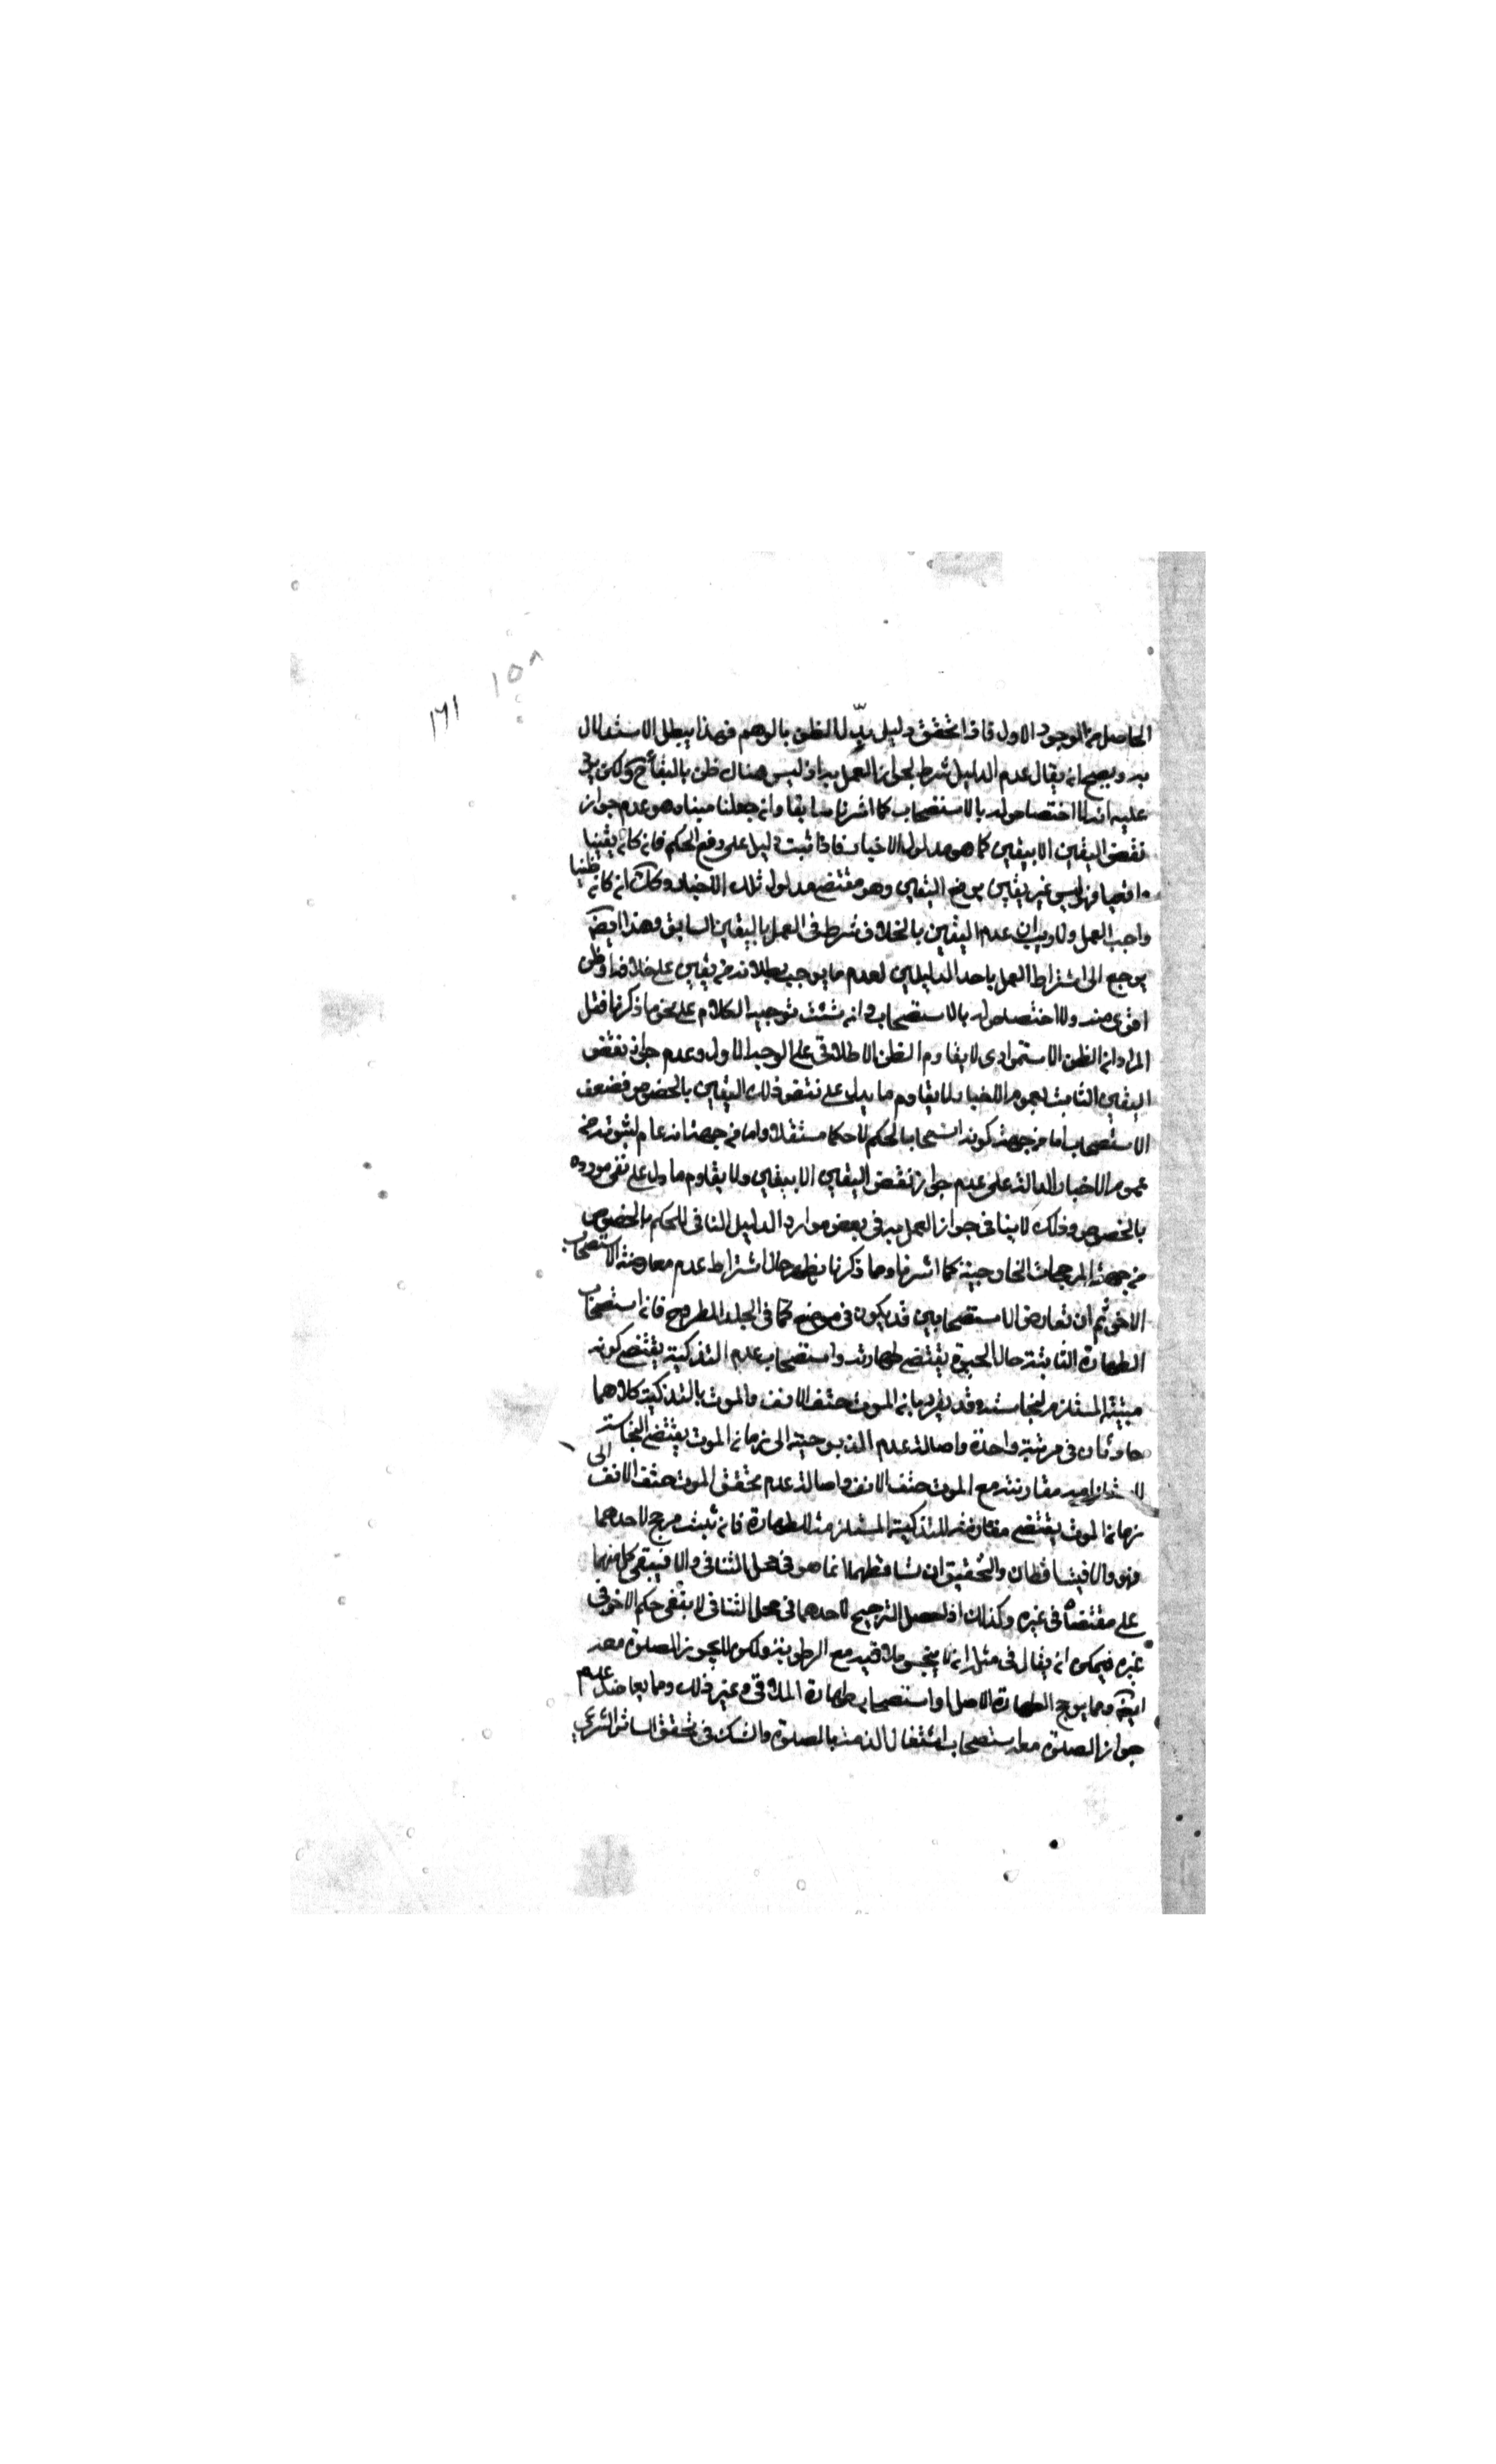 ١٥٨
١٦١
الحاصل من الوجود الاول فاذا تحقق دليل يبدّل الظن بالوهم فهذا يبطل الاستدلال
به ويصح ان يقال عدم الدليل شرط لجواز العمل به اذ ليس هناك ظن بالبقاء ح ولكن يرد
عليه انه لا اختصاص له بالاستصحاب كما اشرنا سابقا وان جعلنا مبناه هو عدم جواز
نقض اليقين الا بيقين كما هو مدلول الاخبار فاذا ثبت دليل على رفع الحكم فان كان يقينا
واقعيا فهو ليس غير يقين يرفع اليقين وهو مقتضى مدلول تلك الاخبار وكك ان كان ظنيا
واجب العمل ولا ريب ان عدم اليقين بالخلاف شرط في العمل باليقين السابق وهذا ايضا
يرجع الى اشتراط العمل باحد الدليلين لعدم ما يوجب بطلانه من يقين على خلافه او ظن
اقوى منه ولا اختصاص له بالاستصحاب وان شئت توجيه الكلام على نحو ما ذكرنا فقل
المراد ان الظن الاستمرادى لا يقاوم الظن الاطلاقى على الوجه الاول وعدم جواز نقض
اليقين الثابت بعموم الاخبار لا يقاوم ما يدل على نقض ذلك اليقين بالخصوص فضعف
الاستصحاب اما من جهة كونه انسحابا لحكم لا حكما مستقلا واما من جهة انه عام لثبوته من
عموم الاخبار الدالة على عدم جواز نقض اليقين الا بيقين ولا يقاوم ما دل على نفى مورده
بالخصوص وذلك لا ينافى جواز العمل به فى بعض موارد الدليل النافى للحكم بالخصوص
من جهة المرجحات الخارجية كما اشرنا وما ذكرنا يظهر حال اشتراط عدم معارضة الاستصحاب
الاخر ثم ان تعارض الاستصحابين قد يكون فى موضع كما فى الجلد المطروح فان استصحاب
الطهارة الثابتة حال الحيوة يقتضى طهارته واستصحاب عدم التذكية يقتضى كونه
ميتة المستلزم لنجاسته وقد يقرر بان الموت حتف الانف والموت بالتذكية كلاهما
حادثان فى مرتبة واحدة واصالة عدم المذبوحية الى زمان الموت يقتضى النجاسة
مقارنته مع الموت حتف الانف واصالة عدم تحقق الموت حتف الانف الى
زمان الموت يقتضى مقارنته للتذكية المستلزمة للطهارة فان ثبت مرجح لاحدهما
فهو والا فيتساقطان والتحقيق ان تساقطهما انما هو فى محل التنافى والا فيبقى كل منهما
على مقتضاه فى غيره وكذلك اذا حصل الترجيح لاحدهما فى محل التنافى لا ينفى حكم الاخر فى
غيره فيمكن ان يقال فى مثله انه لا ينجس ملاقيه مع الرطوبة ولكن لا يجوز الصلوة معه
ايضا ومما يرجح الطهارة الاصل او استصحاب طهارة الملاقى وغير ذلك ومما يعاضد عدم
جواز الصلوة معه استصحاب اشتغال الذمة بالصلوة والشك فى تحقق الساتر الشرعى